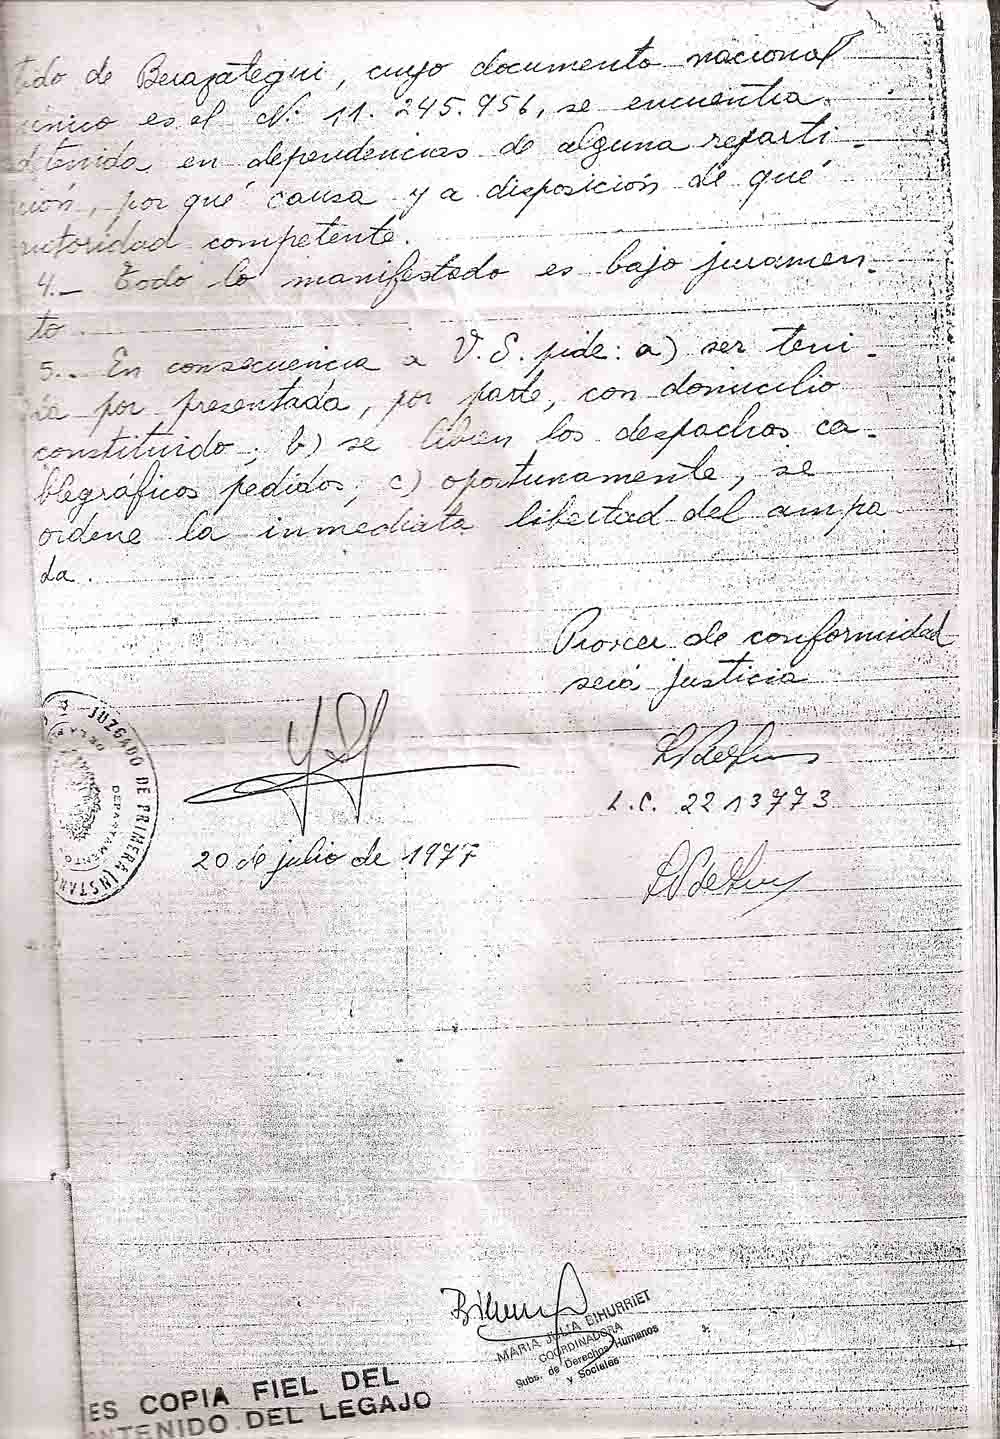 tido de Berazategui, cuyo documento nacional
único es el N: 11.245.956, se encuentra
detenida en dependencias de alguna reparti-
ción, por qué causa y a disposición de qué
autoridad competente.
4.- Todo lo manifestado es bajo juramen-
to.
5.- En consecuencia a V.S. pide: a) ser teni-
da por presentada, por parte, con domicilio
constituido; b) se libren los despachos ca-
blegráficos pedidos; c) oportunamente, se
ordene la inmediata libertad del ampa
da.
Proveer de conformidad
será justicia
L.C. 2213773
20 de julio de 1977
JUZGADO DE PRIMERA INSTANC
DEPARTAMENTO
MARIA JULIA BIHURRIET
COORDINADORA
Subs. de Derechos Humanos
y Sociales
ES COPIA FIEL DEL
NTENIDO DEL LEGAJO